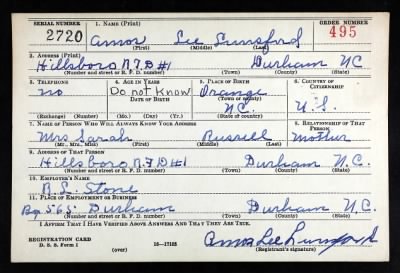 SERIAL NUMBER 1. NAME (Print) ORDER NUMBER
2720 Amos Lee Lunsford 495
(First) (Middle) (Last)
2. ADDRESS (Print)
Hillsboro R.F.D #1 Durham N.C.
(Number and street or R. F. D. number) (Town) (County) (State)
3. TELEPHONE 4. AGE IN YEARS 5. PLACE OF BIRTH 6. COUNTRY OF CITIZENSHIP
no Do not Know Orange
DATE OF BIRTH (Town or county)
N.C. U.S.
(Exchange) (Number) (Mo.) (Day) (Yr.) (State or country)
7. NAME OF PERSON WHO WILL ALWAYS KNOW YOUR ADDRESS 8. RELATIONSHIP OF THAT PERSON
Mrs Sarah Russell Mother
(Mr., Mrs., Miss) (First) (Middle) (Last)
9. ADDRESS OF THAT PERSON
Hillsboro R.F.D #1 Durham N.C.
(Number and street or R. F. D. number) (Town) (County) (State)
10. EMPLOYER'S NAME
B. L. Stone
11. PLACE OF EMPLOYMENT OR BUSINESS
Box 565 Durham Durham N.C.
(Number and street or R. F. D. number) (Town) (County) (State)
I AFFIRM THAT I HAVE VERIFIED ABOVE ANSWERS AND THAT THEY ARE TRUE.
REGISTRATION CARD
D. S. S. Form 1 (over) 16—17105 Amos Lee Lunsford
(Registrant's signature)